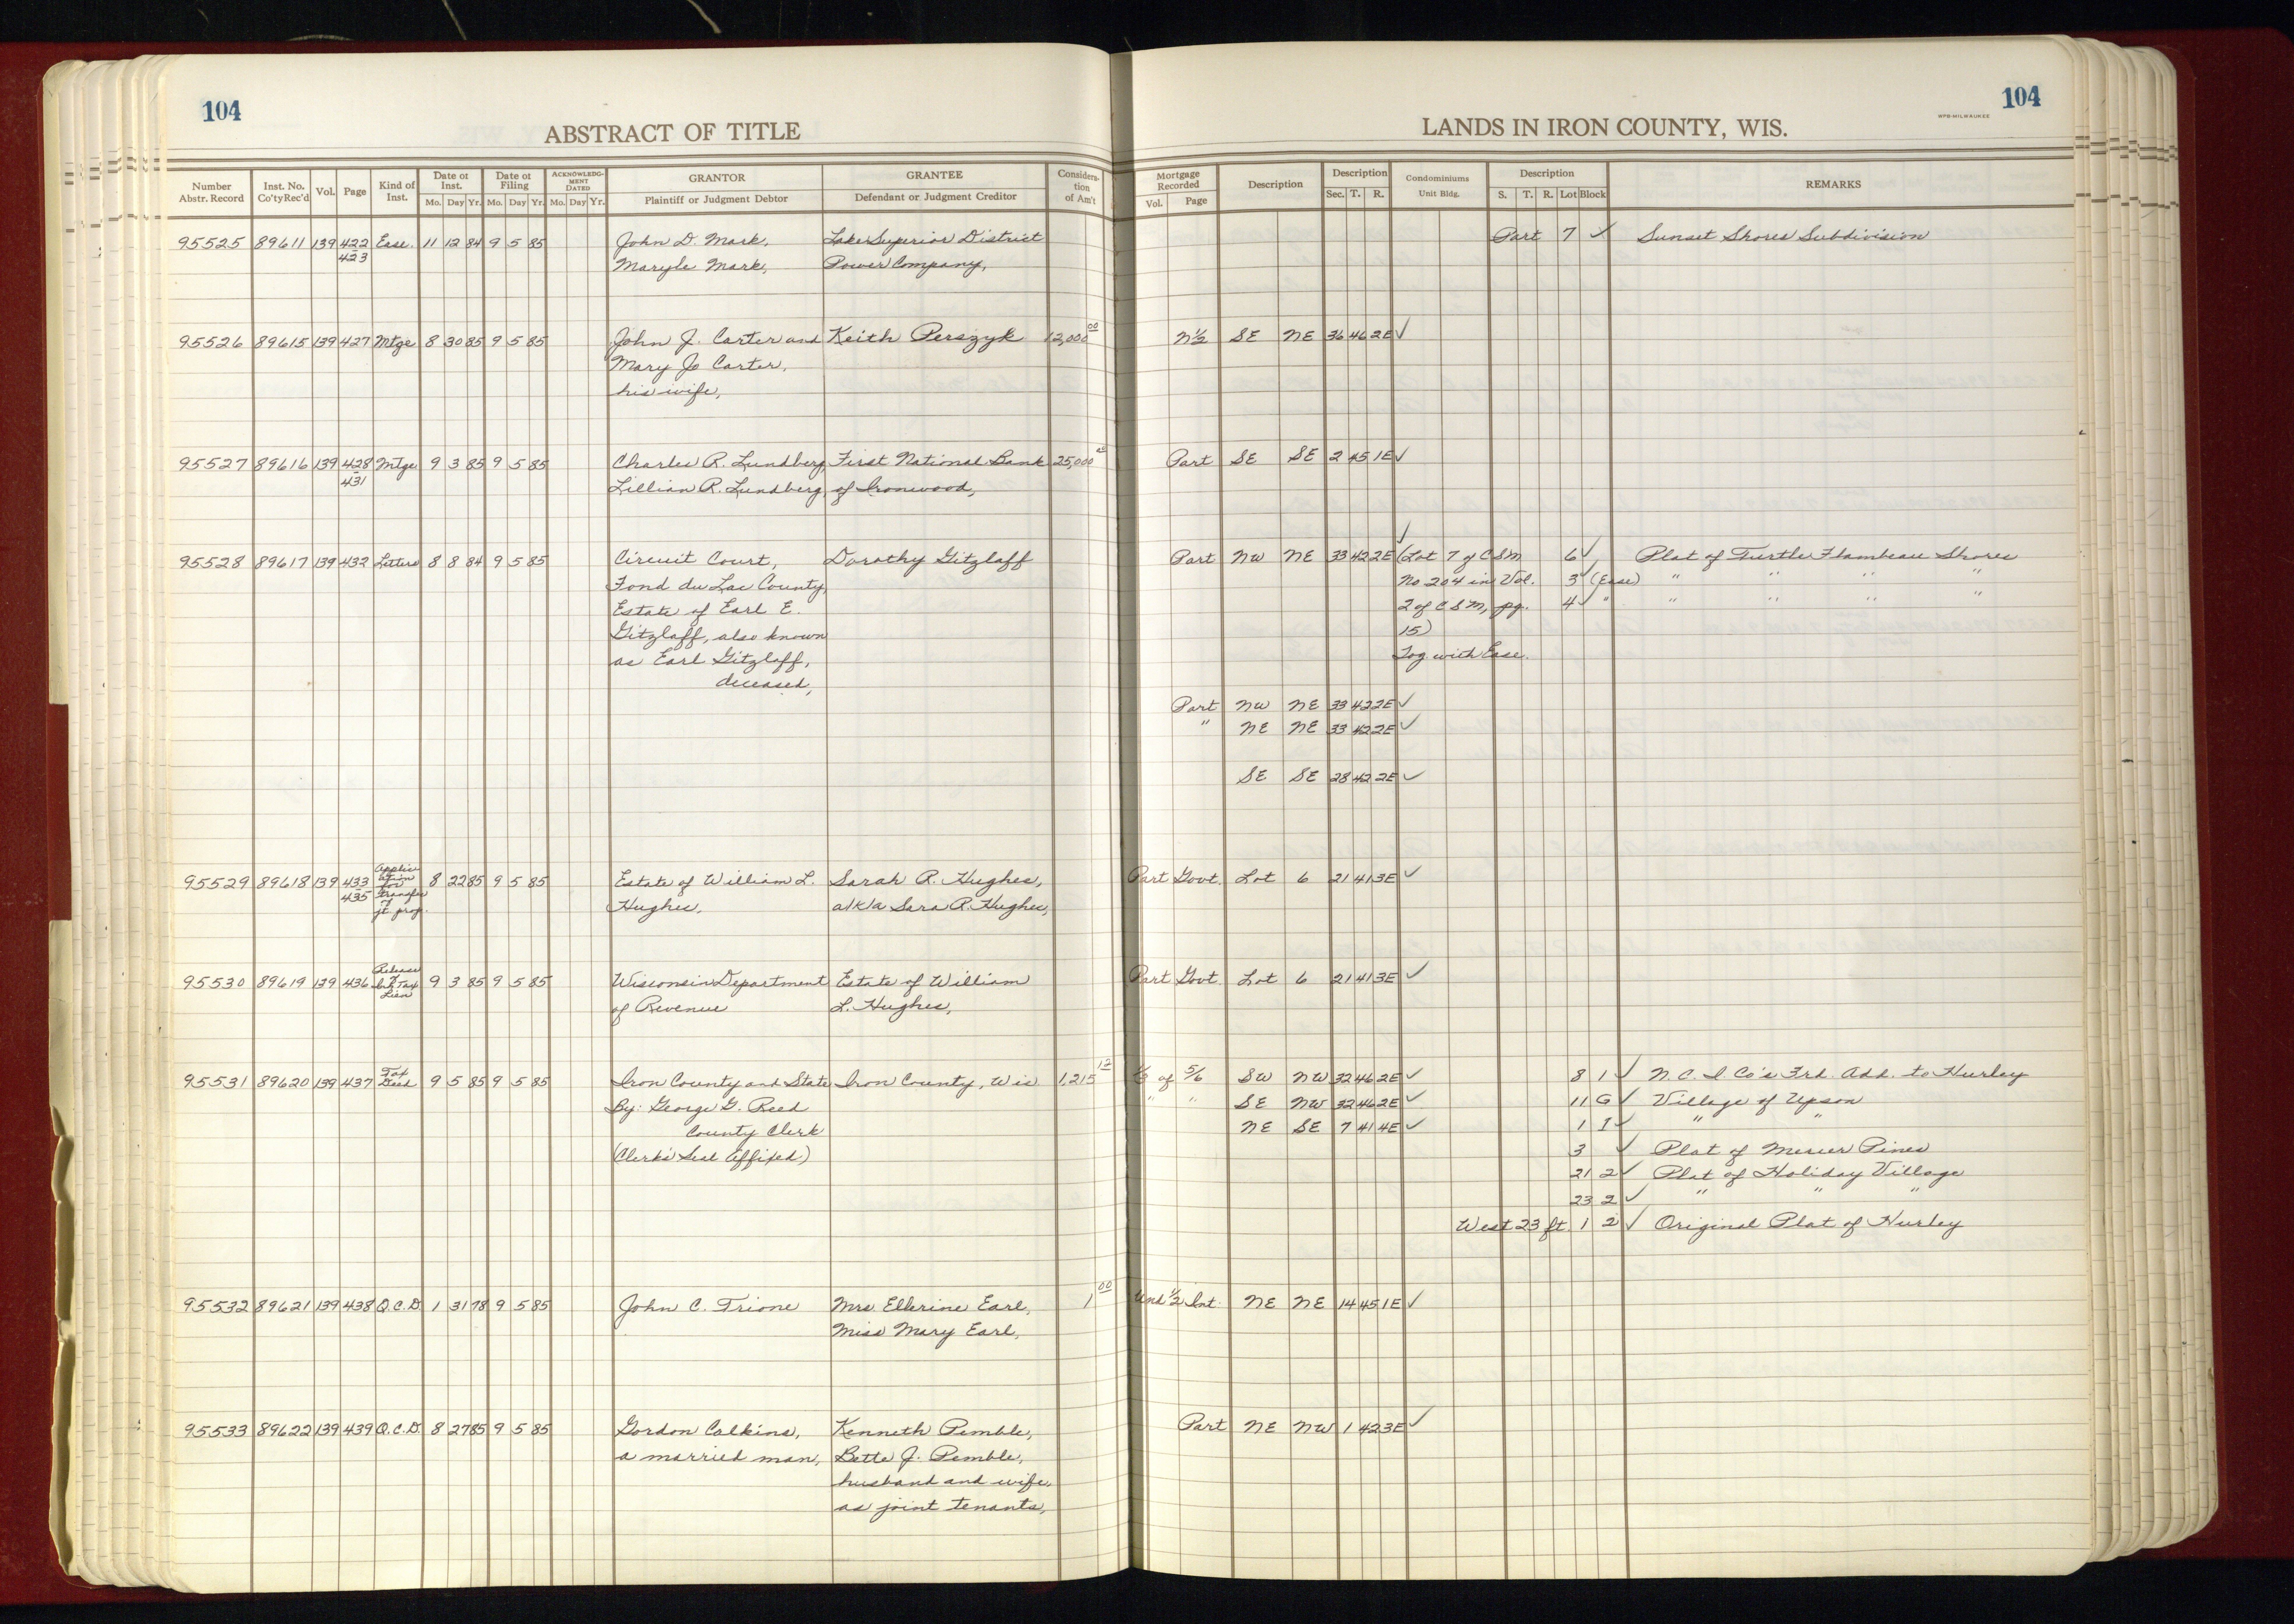 104
104
ABSTRACT OF TITLE
LANDS IN IRON COUNTY, WIS.
WPB-MILWAUKEE
Number Abstr. Record Inst. No. Co'ty Rec'd Vol. Page Kind of Inst. Date of Inst. Mo. Day Yr. Date of Filing Mo. Day Yr. ACKNOWLEDGMENT DATED Mo. Day Yr. GRANTOR Plaintiff or Judgment Debtor GRANTEE Defendant or Judgment Creditor Consideration of Am't
Mortgage Recorded Vol. Page Description Description Sec. T. R. Condominiums Unit Bldg. Description S. T. R. Lot Block REMARKS
95525 89611 139 422 Ease. 11 12 84 9 5 85 John D. Mark, Lake Superior District Part 7 ✓ Sunset Shores Subdivision
423 Maryle Mark, Power Company,
95526 89615 139 427 Mtge 8 30 85 9 5 85 John J. Carter and Keith Perszyk 12,000 00 N½ SE NE 36 46 2E ✓
Mary Jo Carter,
his wife,
95527 89616 139 428 Mtge 9 3 85 9 5 85 Charles R. Lundberg, First National Bank 25,000 Part SE SE 2 45 1E ✓
431 Lillian R. Lundberg, of Ironwood,
95528 89617 139 432 Letters 8 8 84 9 5 85 Circuit Court, Dorothy Gitzlaff Part NW NE 33 42 2E ✓ (Lot 7 of CSM 6 ✓ Plat of Turtle Flambeau Shores
Fond du Lac County, No 204 in Vol. 3 ✓ (Ease) " " " "
Estate of Earl E. 2 of CSM, pg. 4 ✓ " " " " "
Gitzlaff, also known 15)
as Earl Gitzlaff, Tog with Ease.
deceased,
Part NW NE 33 42 2E ✓
" NE NE 33 42 2E ✓
SE SE 28 42 2E ✓
95529 89618 139 433 435 Application for Transfer of jt. prop. 8 22 85 9 5 85 Estate of William L. Sarah R. Hughes, Part Govt. Lot 6 21 41 3E ✓
Hughes, a/k/a Sara R. Hughes,
95530 89619 139 436 Release of Tax Lien 9 3 85 9 5 85 Wisconsin Department Estate of William Part Govt. Lot 6 21 41 3E ✓
of Revenue L. Hughes,
95531 89620 139 437 Tax Deed 9 5 85 9 5 85 Iron County and State Iron County, Wis 1,215 12 ⅓ of 5/6 SW NW 32 46 2E ✓ 8 1 ✓ N.C.I. Co's Frd. Add. to Hurley
By: George G. Reed " " SE NW 32 46 2E ✓ 11 G ✓ Village of Upson
County Clerk NE SE 7 41 4E ✓ 1 I ✓ " "
(Clerk's Seal Affixed) 3 ✓ Plat of Mercer Pines
21 2 ✓ Plat of Holiday Village
23 2 ✓ " " "
West 23 ft. 1 2 ✓ Original Plat of Hurley
95532 89621 139 438 Q.C.D. 1 31 78 9 5 85 John C. Trione Mrs Ellerine Earl, 1 00 Und ½ Int. NE NE 14 45 1E ✓
Miss Mary Earl,
95533 89622 139 439 Q.C.D. 8 27 85 9 5 85 Gordon Calkins, Kenneth Pemble, Part NE NW 1 42 3E ✓
a married man, Bette J. Pemble,
husband and wife,
as joint tenants,